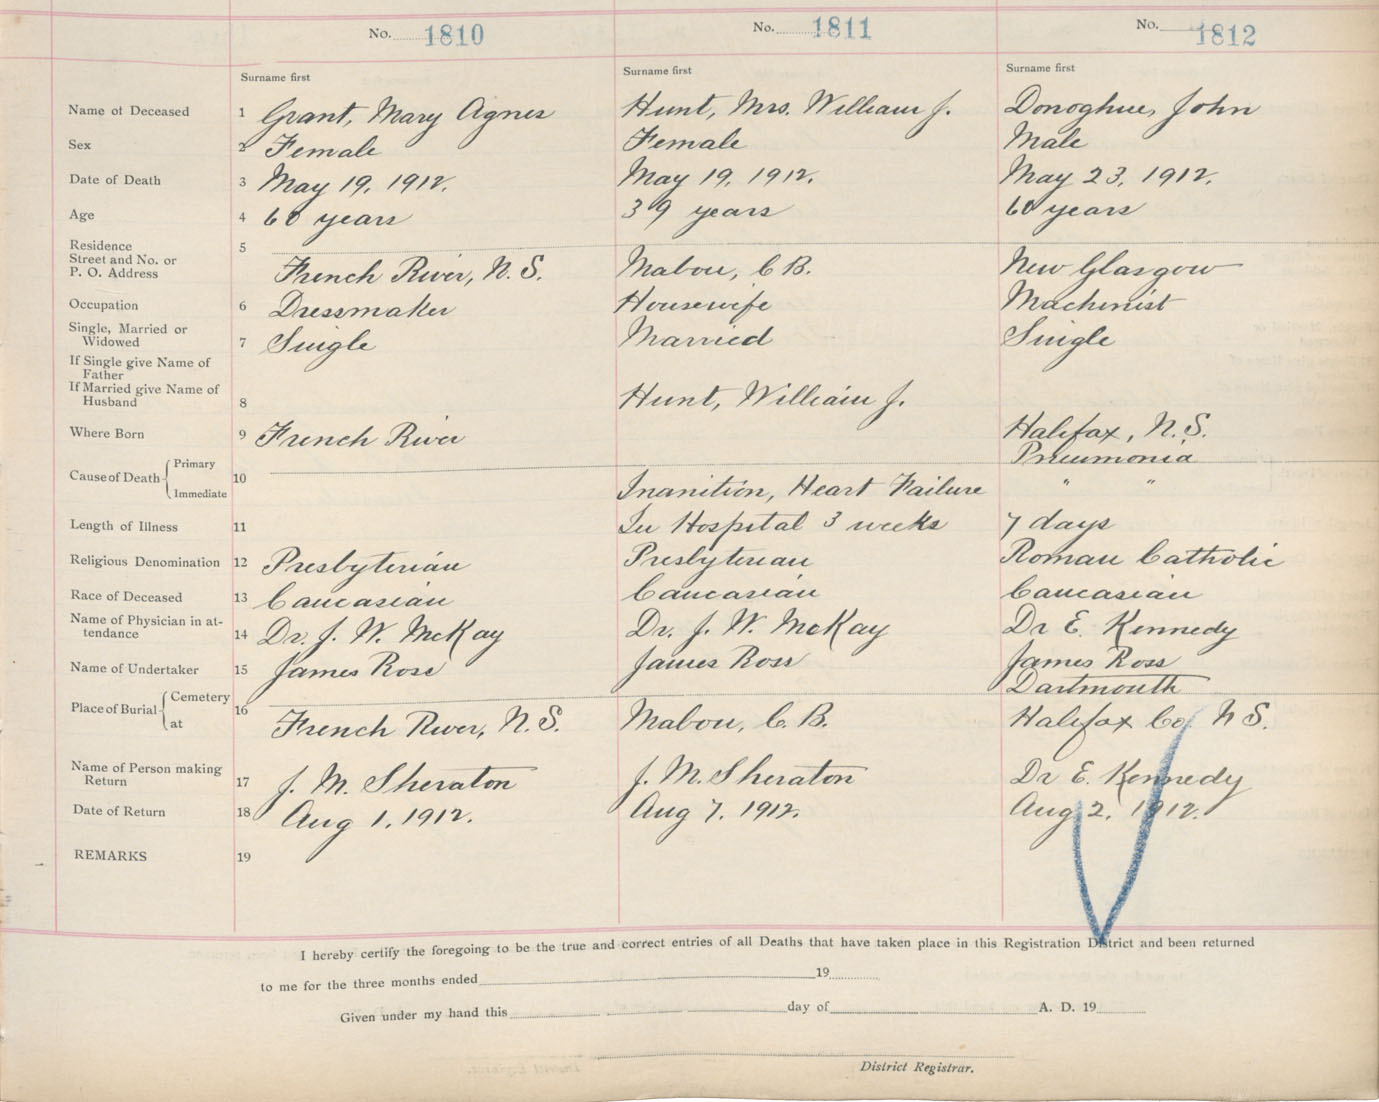 No. 1810 No. 1811 No. 1812
Surname first Surname first Surname first
Name of Deceased 1 Grant, Mary Agnes Hunt, Mrs. William J. Donoghue, John
Sex 2 Female Female Male
Date of Death 3 May 19, 1912. May 19, 1912. May 23, 1912.
Age 4 60 years 39 years 60 years
Residence 5
Street and No. or
P. O. Address French River, N. S. Mabou, C. B. New Glasgow
Occupation 6 Dressmaker Housewife Machinist
Single, Married or
Widowed 7 Single Married Single
If Single give Name of
Father
If Married give Name of
Husband 8 Hunt, William J.
Where Born 9 French River Halifax, N. S.
Cause of Death Primary 10 Pneumonia
Immediate Inanition, Heart Failure " "
Length of Illness 11 In Hospital 3 weeks 7 days
Religious Denomination 12 Presbyterian Presbyterian Roman Catholic
Race of Deceased 13 Caucasian Caucasian Caucasian
Name of Physician in at-
tendance 14 Dr. J. W. McKay Dr. J. W. McKay Dr E. Kennedy
Name of Undertaker 15 James Ross James Ross James Ross
Place of Burial Cemetery 16 Dartmouth
at French River, N. S. Mabou, C. B. Halifax Co. N S.
Name of Person making
Return 17 J. M. Sheraton J. M. Sheraton Dr E. Kennedy
Date of Return 18 Aug 1, 1912. Aug 7, 1912. Aug 2, 1912.
REMARKS 19
I hereby certify the foregoing to be the true and correct entries of all Deaths that have taken place in this Registration District and been returned
to me for the three months ended 19
Given under my hand this day of A. D. 19
District Registrar.